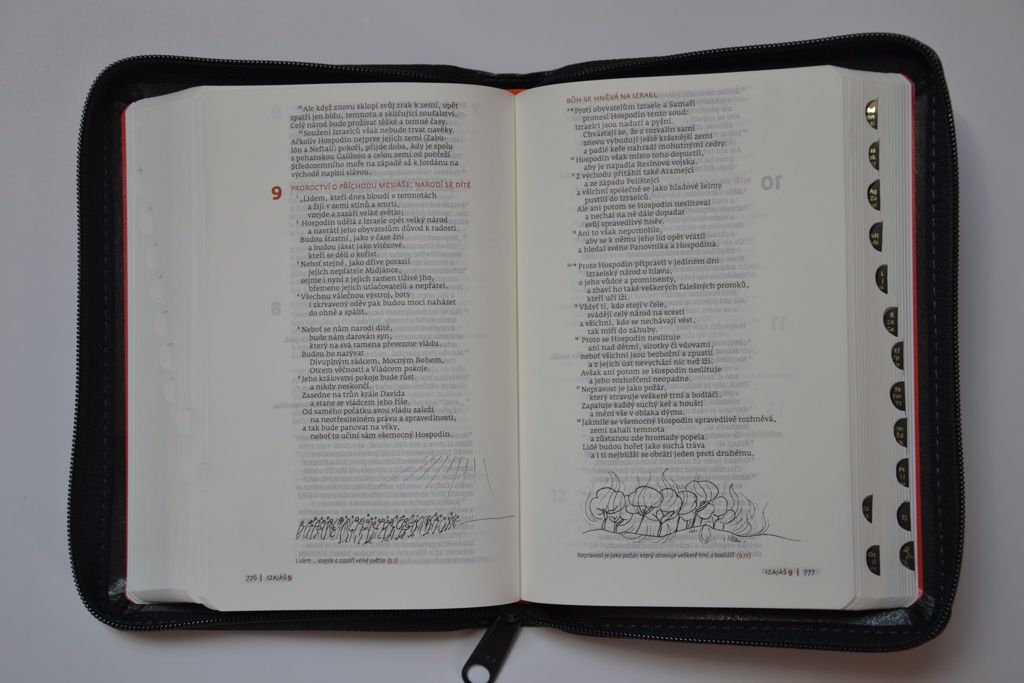 "Ale když znovu sklopí svůj zrak k zemi, opět
spatří jen bídu, temnotu a skličující zoufalství.
Celý národ bude prožívat těžké a temné časy.
Soužení Izraelců však nebude trvat navěky.
Ačkoliv Hospodin nejprve jejich zemi (Zabu-
lón a Neftalí) pokoří, přijde doba, kdy je spolu
s pohanskou Galileou a celou zemí od pobřeží
Středozemního moře na západě až k Jordánu na
východě naplní slávou.
9 PROROCTVÍ O PŘÍCHODU MESIÁŠE: NARODÍ SE DÍTĚ
„Lidem, kteří dnes bloudí v temnotách
a žijí v zemi stínů a smrti,
vzejde a zazáří velké světlo;
Hospodin udělá z Izraele opět velký národ
a navrátí jeho obyvatelům důvod k radosti.
Budou šťastní, jako v čase žní
a budou jásat jako vítězové,
kteří se dělí o kořist.
Neboť stejně, jako dříve porazil
jejich nepřátele Midjánce,
sejme i nyní z jejich ramen tíživé jho,
břemeno jejich utlačovatelů a nepřátel.
Všechnu válečnou výstroj, boty
i zkrvavený oděv pak budou moci naházet
do ohně a spálit,
Neboť se nám narodí dítě,
bude nám darován syn,
který na svá ramena převezme vládu.
Budou ho nazývat
Divuplným rádcem, Mocným Bohem,
Otcem věčnosti a Vládcem pokoje.
Jeho království pokoje bude růst
a nikdy neskončí.
Zasedne na trůn krále Davida
a stane se vládcem jeho říše.
Od samého počátku svou vládu založí
na neotřesitelném právu a spravedlnosti,
a tak bude panovat na věky,
neboť to učiní sám všemocný Hospodin.
Lidem ... vzejde a zazáří velké světlo (9,1)
776 | IZAJÁŠ 9
BŮH SE HNĚVÁ NA IZRAEL
Proti obyvatelům Izraele a Samaří
pronesl Hospodin tento soud:
Izraelci jsou nadutí a pyšní.
Chvástají se, že z rozvalin sami
znovu vybudují ještě krásnější zemi
a padlé keře nahradí mohutnými cedry.
Hospodin však místo toho dopustil,
aby je napadla Resínova vojska.
Z východu přitáhli také Aramejci
a ze západu Pelištejci
a všichni společně se jako hladové šelmy
pustili do Izraelců.
Ale ani potom se Hospodin neslitoval
a nechal na ně dále dopadat
svůj spravedlivý hněv.
Ani to však nepomohlo,
aby se k němu jeho lid opět vrátil
a hledal svého Panovníka a Hospodina.
Proto Hospodin připravil v jediném dni
izraelský národ o hlavu,
o jeho vůdce a prominenty,
a zbaví ho také veškerých falešných proroků,
kteří učí lži.
Vždyť ti, kdo stojí v čele,
svádějí celý národ na scestí
a všichni, kdo se nechávají vést,
tak míří do záhuby.
Proto se Hospodin neslituje
ani nad dětmi, sirotky či vdovami,
neboť všichni jsou bezbožní a zpustlí
a z jejich úst nevychází nic než lži.
Avšak ani potom se Hospodin neslituje
a jeho rozhořčení neopadne.
Nepravost je jako požár,
který stravuje veškeré trní a bodláčí,
Zapaluje každý suchý keř a houští
a mění vše v oblaka dýmu.
Jakmile se všemocný Hospodin spravedlivě rozhněvá,
zemi zahalí temnota
a zůstanou zde hromady popela.
Lidé budou hořet jako suchá tráva
a i ti nejbližší se obrátí jeden proti druhému.
Nepravost je jako požár, který stravuje veškeré trní a bodláčí (9,17)
IZAJÁŠ 9 | 777